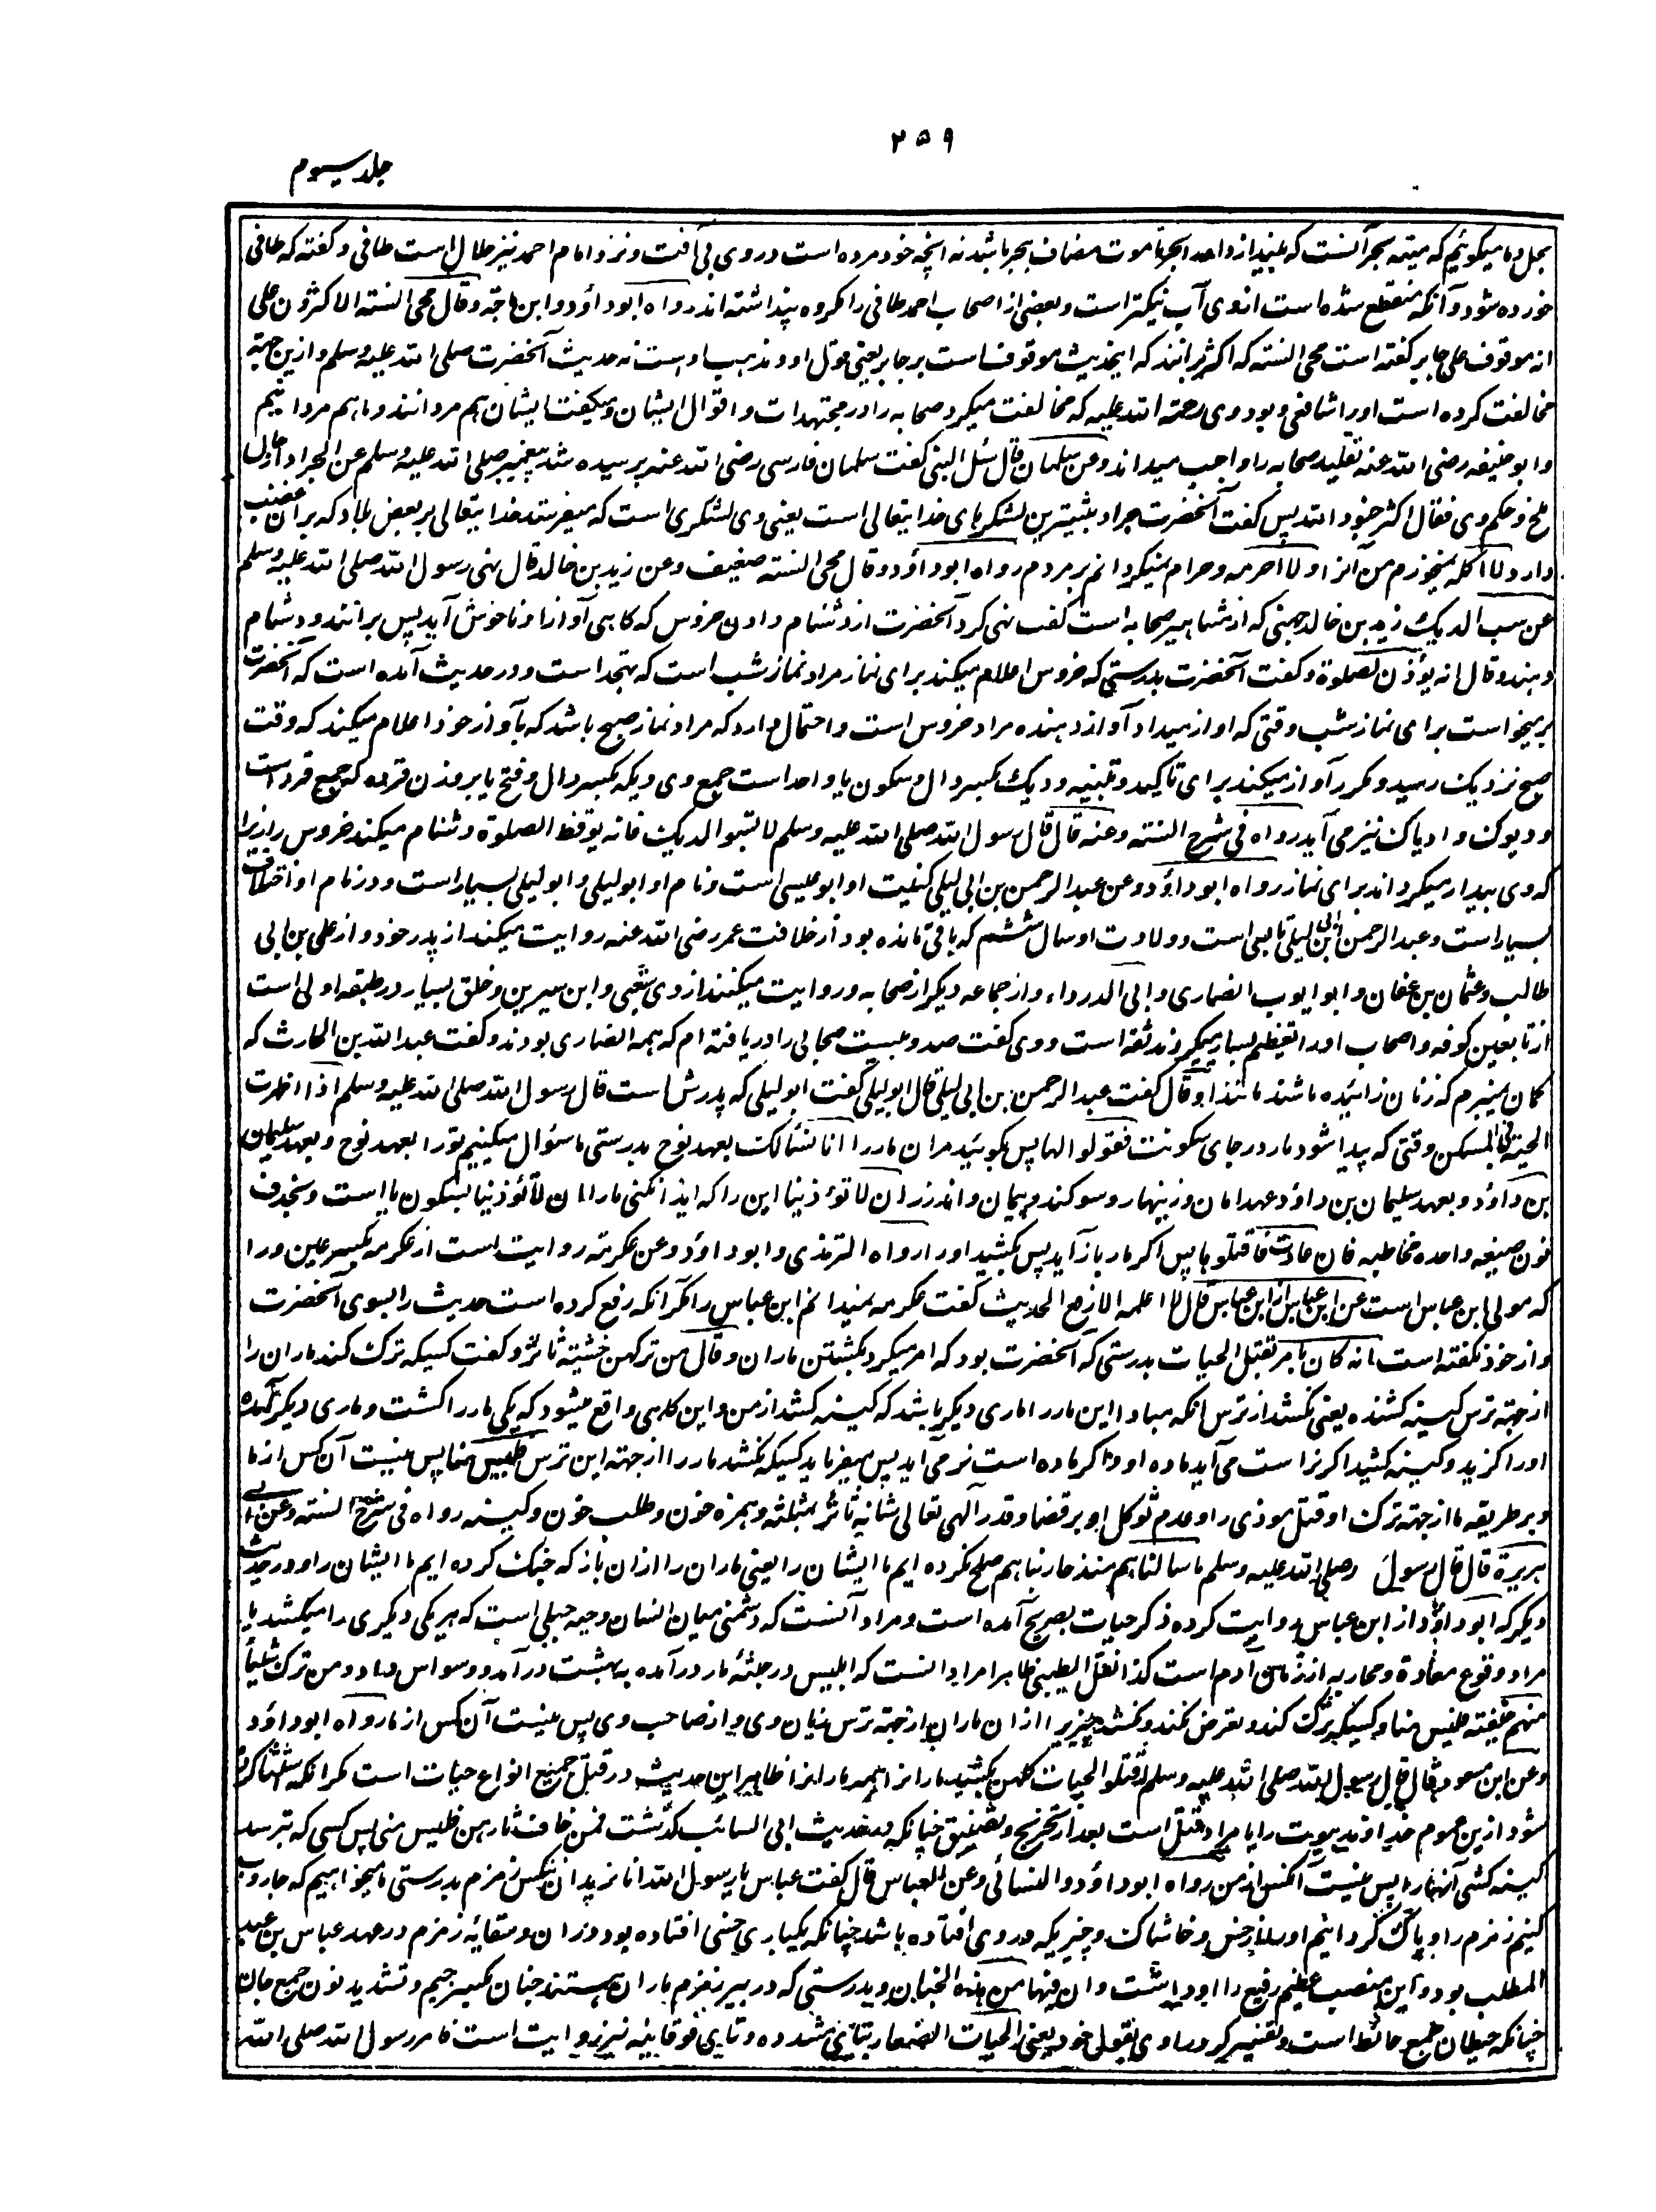 ۲۵۹
جلد سیوم
بحل و ما میکوئیم که میته بحر آنست که بیندازد او را بحر تا موت مضاف ببحر باشد نه آنچه خود مرده است در وی بی آفت و نزد امام احمد نیز حلال است طافی و کفته که طافی
خورده شود و آنکه منقطع شده است ازوی آب نیکتر است و بعضی از اصحاب احمد طافی را مکروه پنداشته اند رواه ابو داؤد و ابن ماجة و قال محی السنة الاکثرون علی
انه موقوف علی جابر کفته است محی السنة که اکثر برانند که این حدیث موقوف است بر جابر یعنی قول او و مذهب اوست نه حدیث آنحضرت صلی الله علیه وسلم و ازین جهته
مخالفت کرده است او را شافعی و بود وی رحمة الله علیه که مخالفت میکرد صحابه را در مجتهدات و اقوال ایشان و میکفت ایشان هم مردانند و ما هم مردانیم
و ابو حنیفه رضی الله عنه تقلید صحابه را واجب میداند و عن سلمان قال سئل النبی کفت سلمان فارسی رضی الله عنه پرسیده شد پیغمبر صلی الله علیه وسلم عن الجراد از حال
ملخ و حکم وی فقال اکثر جنود الله پس کفت آنحضرت جراد بیشترین لشکرهای خدایتعالی است یعنی وی لشکری است که میفرستد خدایتعالی بر بعض بلاد که بر آن غضب
دارد لا آکله نمیخورم من آنرا و لا احرمه و حرام نمیکردانم بر مردم رواه ابو داؤد و قال محی السنة ضعیف و عن زید بن خالد قال نهی رسول الله صلی الله علیه وسلم
عن سب الدیک زید بن خالد جهنی که از مشاهیر صحابه است کفت نهی کرد آنحضرت از دشنام دادن خروس که کاهی آواز او ناخوش آید پس برانند و دشنام
دهند و قال انه یؤذن للصلوة و کفت آنحضرت بدرستی که خروس اعلام میکند برای نماز مراد نماز شب است که تهجد است و در حدیث آمده است که آنحضرت
برمیخواست برای نماز شب وقتی که آواز میداد آواز دهنده مراد خروس است و احتمال دارد که مراد نماز صبح باشد که بآواز خود اعلام میکند که وقت
صبح نزدیک رسید و مکرر آواز میکند برای تاکید و تنبیه و دیک بکسر دال و سکون یا واحد است جمع وی دیکه بکسر دال و فتح یا بر وزن قرده که جمع قرد است
و دیوک و ادیاک نیز می آید رواه فی شرح السنة و عنه قال قال رسول الله صلی الله علیه وسلم لا تسبوا الدیک فانه یوقظ الصلوة دشنام میکند خروس را زیرا
که وی بیدار میکرداند برای نماز رواه ابو داؤد و عن عبد الرحمن بن ابی لیلی کنیت او ابو عیسی است و نام او ابو لیلی و ابو لیلی بسیار است و در نام او اختلاف
بسیار است و عبد الرحمن بن ابی لیلی تابعی است و ولادت او سال ششم که باقی مانده بود از خلافت عمر رضی الله عنه روایت میکند از پدر خود و از علی بن ابی
طالب و عثمان بن عفان و ابو ایوب انصاری و ابی الدرداء و از جماعه دیگر از صحابه و روایت میکنند از وی شعبی و ابن سیرین و خلق بسیار در طبقه اولی است
از تابعین کوفه و اصحاب او را تعظیم بسیار میکردند ثقه است و وی کفت صد و بیست صحابی را دریافته ام که همه انصاری بودند و کفت عبد الله بن الحارث که
کمان نمیبرم که زنان زائیده باشند مانند او قال کفت عبد الرحمن بن ابی لیلی قال ابو لیلی کفت ابو لیلی که پدرش است قال رسول الله صلی الله علیه وسلم اذا ظهرت
الحیة فی المسکن وقتی که پیدا شود مار در جای سکونت فقولوا لها پس بکوئید مران مار را انا نسألک بعهد نوح بدرستی ما سؤال میکنیم تو را بعهد نوح و بعهد سلیمان
بن داؤد و بعهد سلیمان بن داؤد عهد امان و زینهار و سوکند و پیمان و اندرز ان لا تؤذینا این را که ایذا نکنی ما را ان لا تؤذینا بسکون یا است و بحذف
نون صیغه واحده مخاطبه فان عادت فاقتلوها پس اکر مار باز آید پس بکشید او را رواه الترمذی و ابو داؤد و عن عکرمة روایت است از عکرمه بکسر عین و را
که مولی ابن عباس است عن ابن عباس از ابن عباس قال لا اعلمه الا رفع الحدیث کفت عکرمه نمیدانم ابن عباس را مکر آنکه رفع کرده است حدیث را بسوی آنحضرت
و از خود نکفته است انه کان یامر بقتل الحیات بدرستی که آنحضرت بود که امر میکرد بکشتن ماران و قال من ترکهن خشیة ثائر و کفت کسیکه ترک کند ماران را
از جهته ترس کینه کشنده یعنی نکشد از ترس آنکه مبادا این مار را ماری دیگر باشد که کینه کشد از من و این کاهی واقع میشود که یکی مار را کشت و ماری دیگر آمده
او را کزید و کینه کشید اکر نر است می آید ماده او و اکر ماده است نر می آید پس میفرماید کسیکه نکشد مار را از جهته این ترس فلیس منا پس نیست آن کس از ما
و بر طریقه ما از جهته ترک او قتل موذی را و عدم توکل او بر قضا و قدر آلهی تعالی شانه ثائر بمثلثه و همزه خون و طلب خون و کینه رواه فی شرح السنة و عن ابی
هریرة قال قال رسول الله صلی الله علیه وسلم ما سالمناهم منذ حاربناهم صلح نکرده ایم ما ایشان را یعنی ماران را از ان باز که جنک کرده ایم ما ایشان را و در حدیث
دیگر که ابو داؤد از ابن عباس روایت کرده ذکر حیات بصریح آمده است و مراد آنست که دشمنی میان انسان و حیه جبلی است که هر یکی دیگری را میکشد یا
مراد وقوع معادة و محاربه از زمان آدم است کذا نقل الطیبی ظاهرا مراد آنست که ابلیس در جثه مار درآمده به بهشت درآمد و وسواس داد و من ترک شیئا
منهم خیفة فلیس منا و کسیکه ترک کند و تعرض نکند و نکشد چیزیرا از ان ماران از جهته ترس زیان وی و از صاحب وی پس نیست آن کس از ما رواه ابو داؤد
و عن ابن مسعود قال قال رسول الله صلی الله علیه وسلم اقتلوا الحیات کلهن بکشید ماران را همه ماران را ظاهر این حدیث در قتل جمیع انواع حیات است مکر آنکه استثنا کرده
شود ازین عموم خداوند بیوت را یا مراد قتل است بعد از تحریج و تضییق چنانکه در حدیث ابی السائب کذشت فمن خاف ثارهن فلیس منی پس کسی که بترسد
کینه کشی آنها را پس نیست آنکس از من رواه ابو داؤد و النسائی و عن العباس قال کفت عباس یا رسول الله انا نرید ان نکنس زمزم بدرستی ما میخواهیم که جاروب
کنیم زمزم را و پاک کردانیم او را از خس و خاشاک و چیزیکه در وی افتاده باشد چنانکه یکباری حبشی افتاده بود دران و سقایه زمزم در عهد عباس بن عبد
المطلب بود و این منصب عظیم رفیع را او داشت و ان فیها من هذه الجنان و بدرستی که در بیر زمزم ماران هستند جنان بکسر جیم و تشدید نون جمع جان
چنانکه حیطان جمع حائط است و تفسیر کرد راوی بقول خود یعنی الحیات الصغار بتای مشدده و تای فوقانیه نیز روایت است فامر رسول الله صلی الله